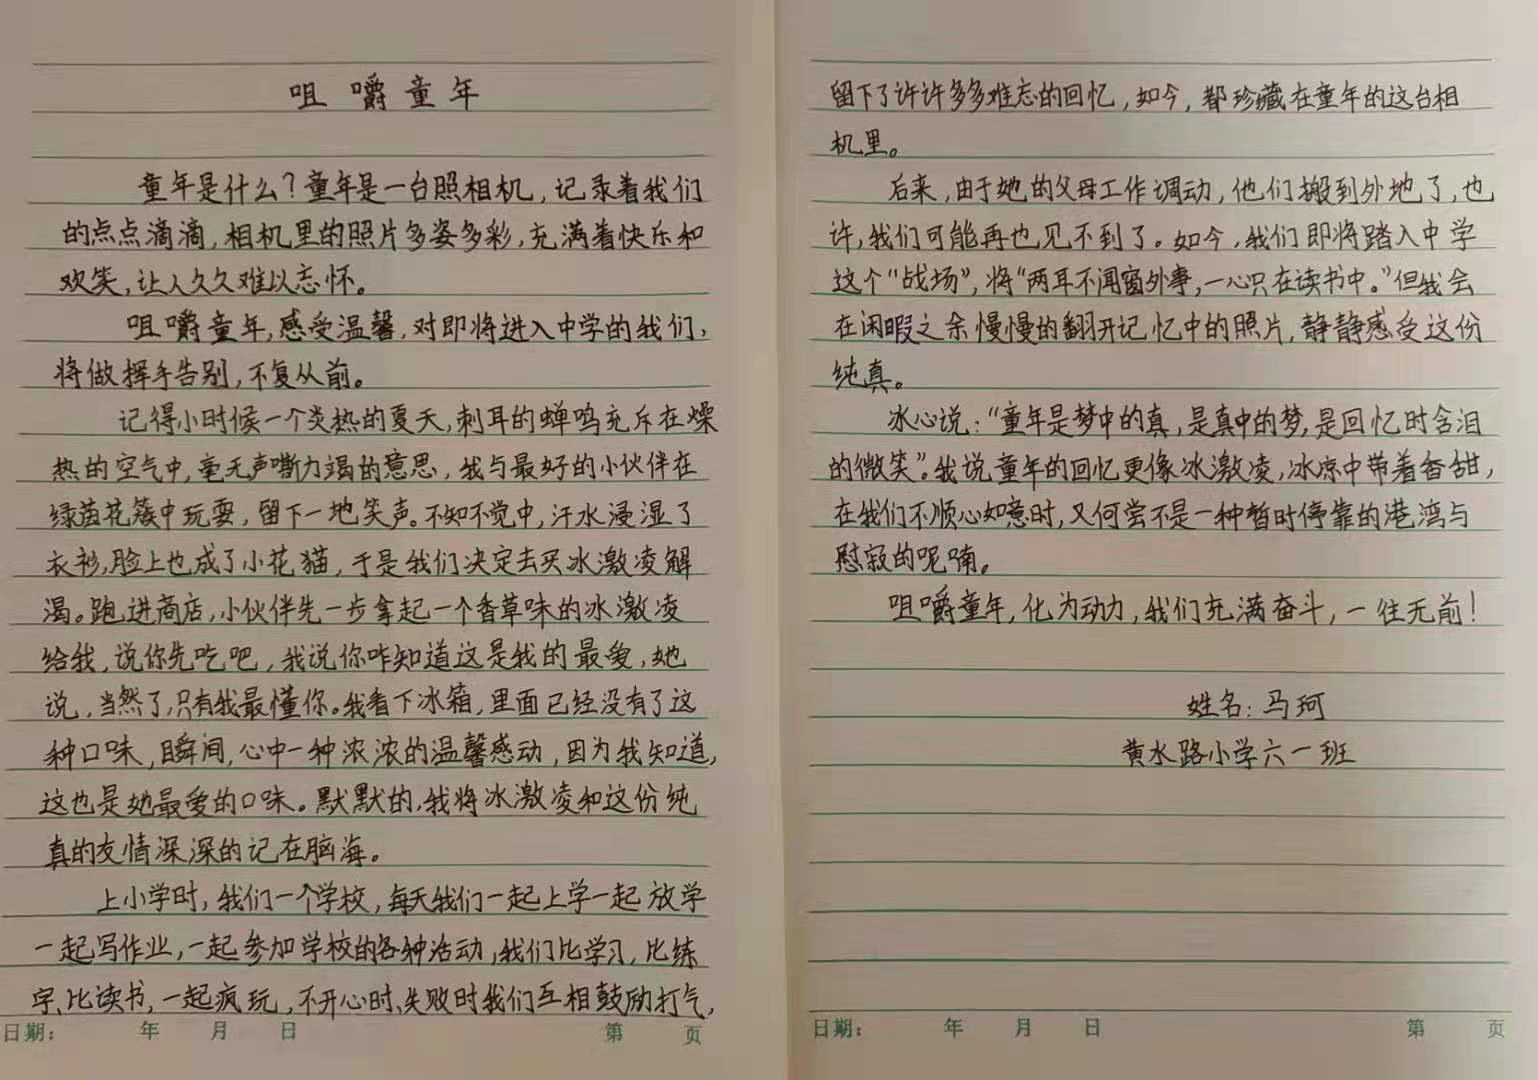 咀嚼童年
童年是什么？童年是一台照相机，记录着我们
的点点滴滴，相机里的照片多姿多彩，充满着快乐和
欢笑，让人久久难以忘怀。
咀嚼童年，感受温馨，对即将进入中学的我们，
将做挥手告别，不复从前。
记得小时候一个炎热的夏天，刺耳的蝉鸣充斥在燥
热的空气中，毫无声嘶力竭的意思，我与最好的小伙伴在
绿茵花簇中玩耍，留下一地笑声。不知不觉中，汗水浸湿了
衣衫，脸上也成了小花猫，于是我们决定去买冰激凌解
渴。跑进商店，小伙伴先一步拿起一个香草味的冰激凌
给我，说你先吃吧，我说你咋知道这是我的最爱，她
说，当然了，只有我最懂你。我看下冰箱，里面已经没有了这
种口味，瞬间，心中一种浓浓的温馨感动，因为我知道，
这也是她最爱的口味。默默的，我将冰激凌和这份纯
真的友情深深的记在脑海。
上小学时，我们一个学校，每天我们一起上学一起放学
一起写作业，一起参加学校的各种活动，我们比学习，比练
字、比读书，一起疯玩，不开心时、失败时我们互相鼓励打气，
日期： 年 月 日 第 页
留下了许许多多难忘的回忆，如今，都珍藏在童年的这台相
机里。
后来，由于她的父母工作调动，他们搬到外地了，也
许，我们可能再也见不到了。如今，我们即将踏入中学
这个“战场”，将“两耳不闻窗外事，一心只在读书中。”但我会
在闲暇之余慢慢的翻开记忆中的照片，静静感受这份
纯真。
冰心说：“童年是梦中的真，是真中的梦，是回忆时含泪
的微笑”。我说童年的回忆更像冰激凌，冰凉中带着香甜，
在我们不顺心如意时，又何尝不是一种暂时停靠的港湾与
慰寂的呢喃。
咀嚼童年，化为动力，我们充满奋斗，一往无前！
姓名：马珂
黄水路小学六一班
日期： 年 月 日 第 页